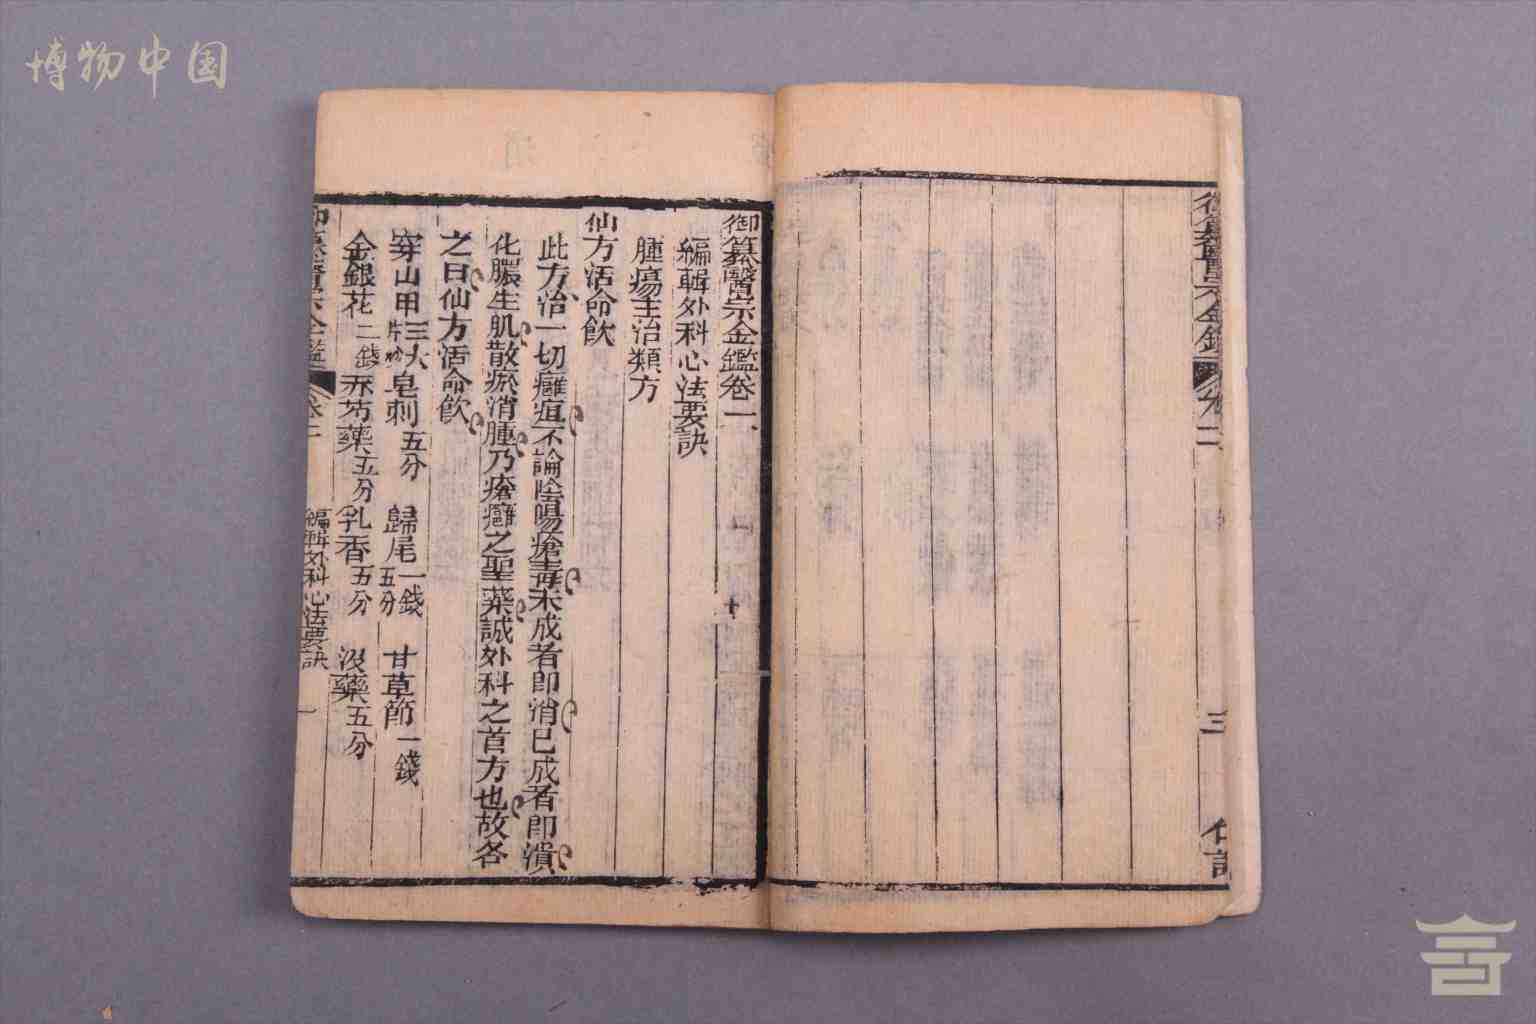 博物中国
御纂醫宗金鑑卷二
三
御纂醫宗金鑑卷二
編輯外科心法要訣
腫瘍主治類方
仙方活命飲
此方治一切癰疽不論陰陽瘡毒未成者即消已成者即潰
化膿生肌散瘀消腫乃瘡癰之聖藥誠外科之首方也故名
之曰仙方活命飲
穿山甲三大片炒 皂刺五分 歸尾一錢五分 甘草節一錢
金銀花二錢 赤芍藥五分 乳香五分 沒藥五分
御纂醫宗金鑑 卷二 編輯外科心法要訣 一